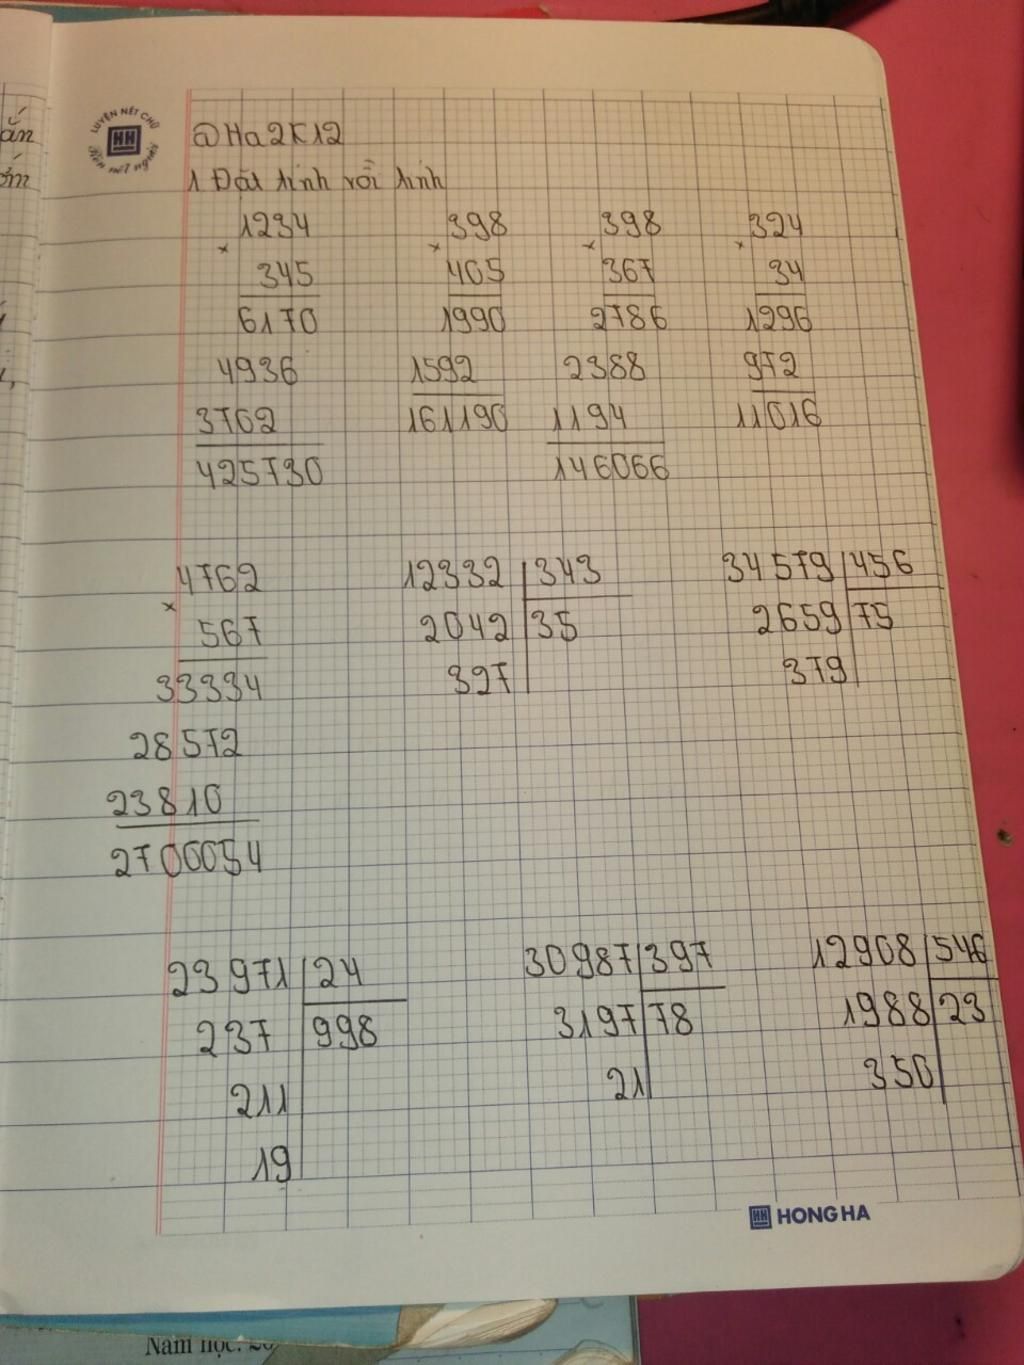 ắn
LUYỆN NÉT CHỮ
HH
Rèn nết người
@Ha2K12
1 Đặt tính rồi tính
1234 398 398 324
× × × ×
345 405 367 34
6170 1990 2786 1296
4936 1592 2388 972
3702 161190 1194 11016
425730 146066
4762 12332 343 34579 456
×
567 2042 35 2659 75
33334 327 379
28572
23810
2700054
23971 24 30987 397 12908 546
237 998 3197 78 1988 23
211 21 350
19
HH HONG HA
Năm học: 20